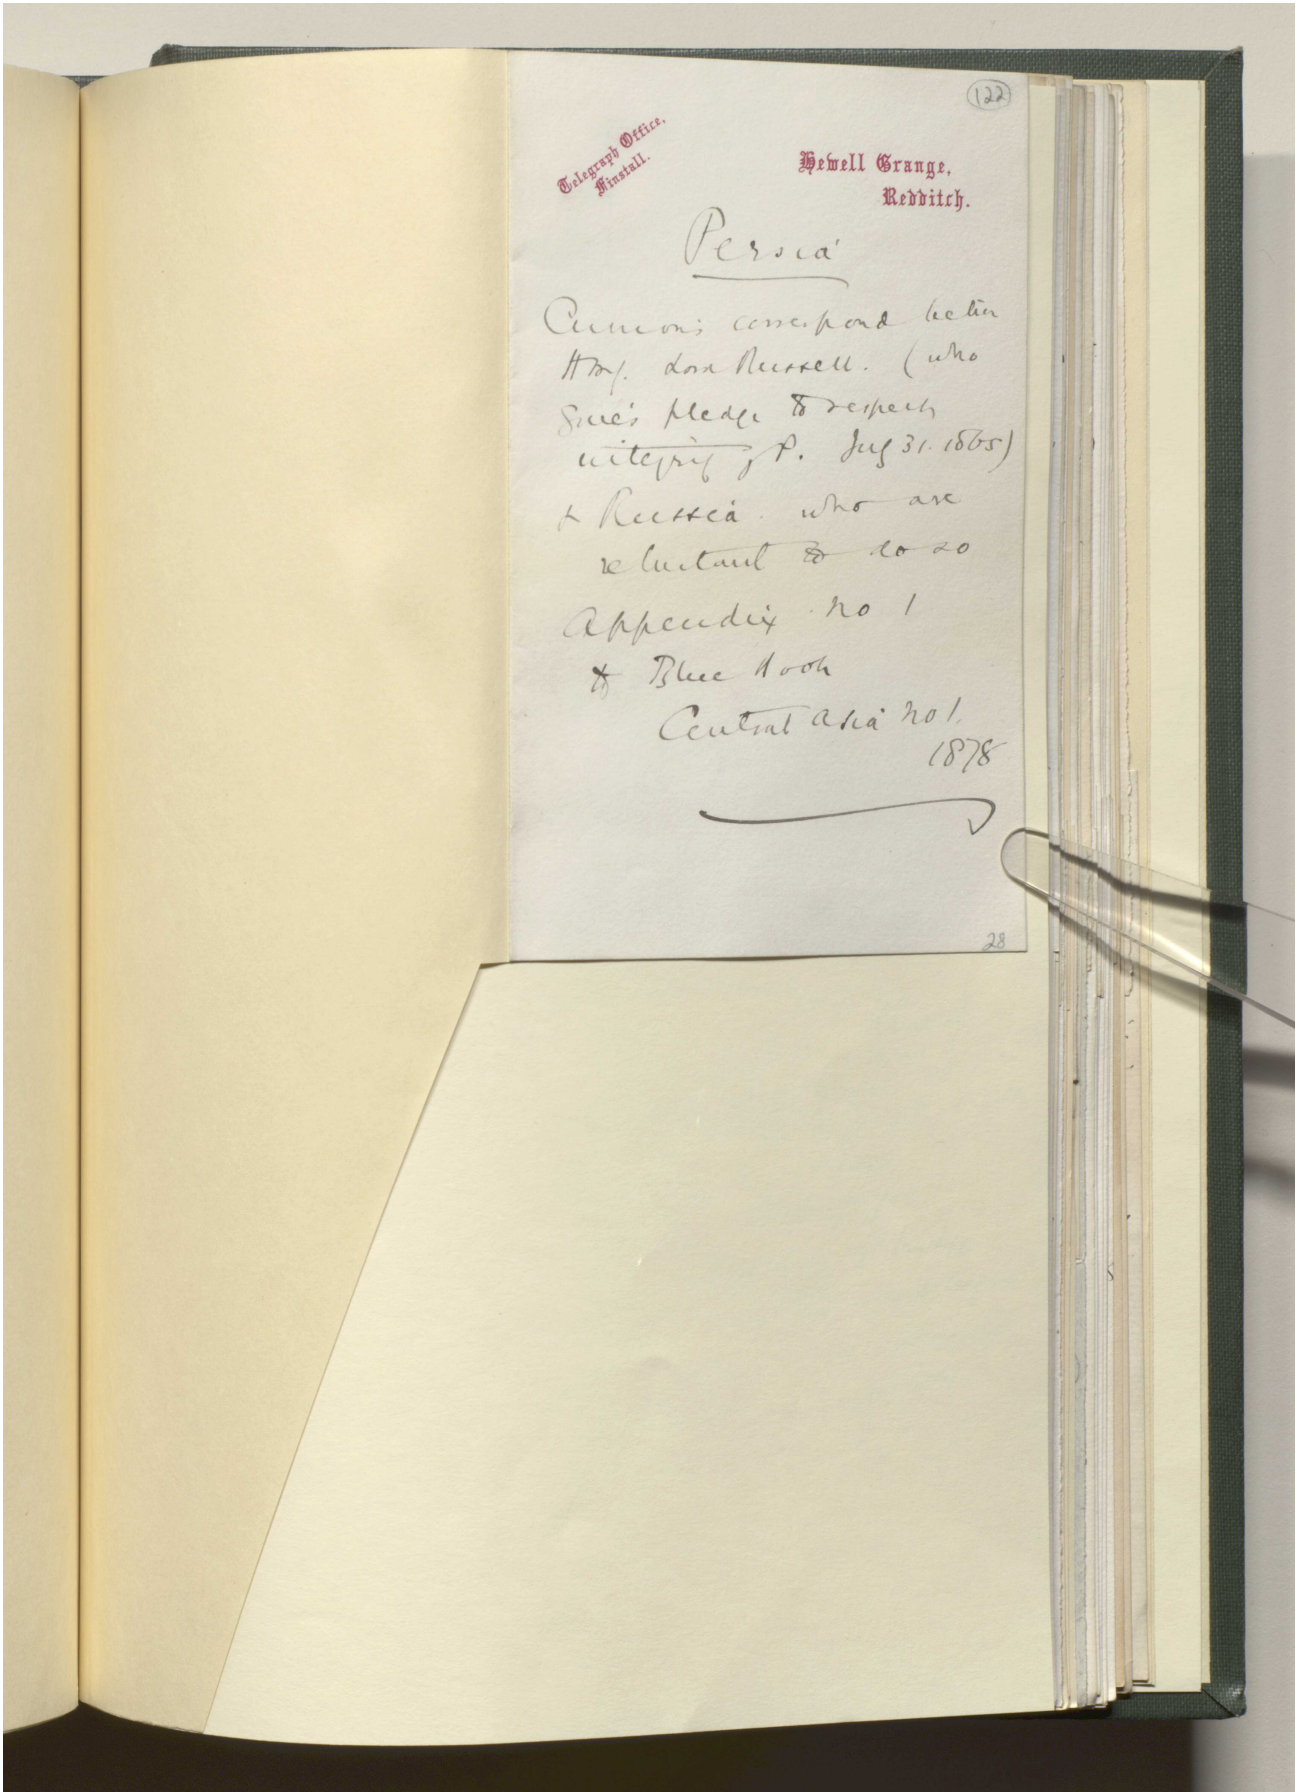 122
Telegraph Office,
Finstall.
Hewell Grange,
Redditch.
Persia
Curious correspond betw
Lord Russell. (who
gives pledge to respect
integrity of P. 31. 1865)
& Russia. who are
reluctant to do so
Appendix No 1
to Blue Book
Central Asia No 1.
1878
28